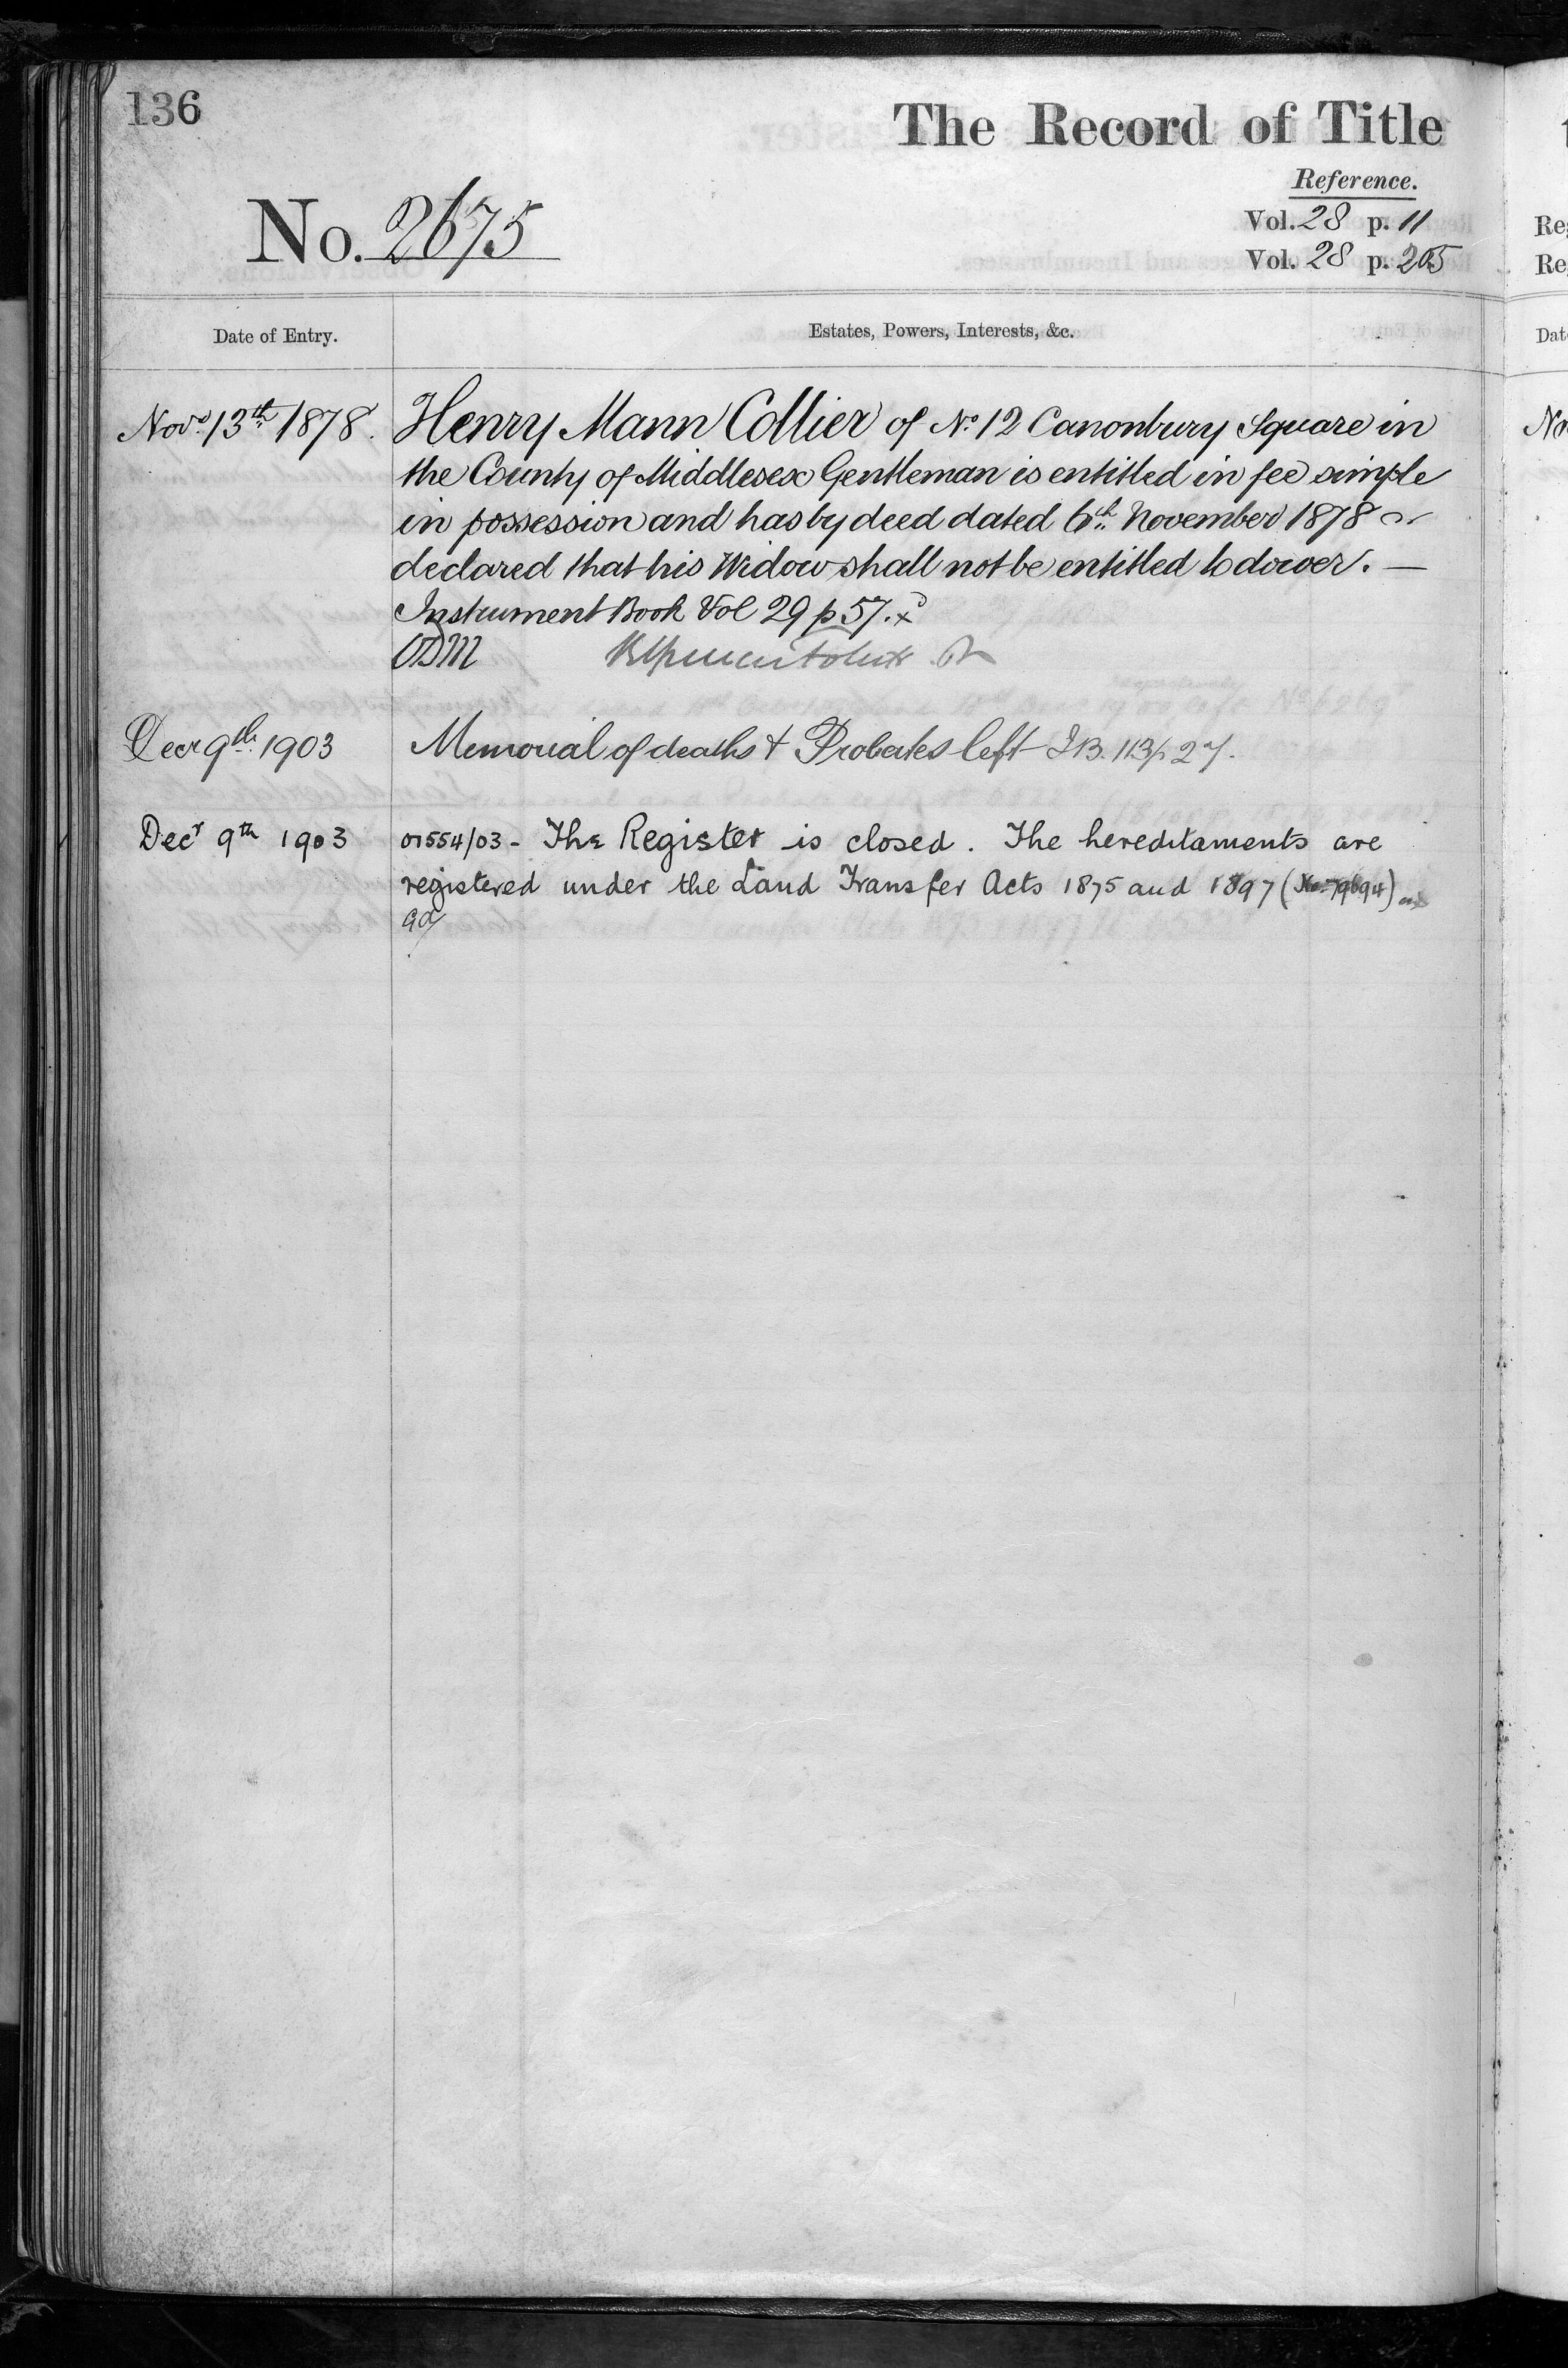 136
The Record of Title
Reference.
No. 2675
Vol. 28 p. 11
Vol. 28 p. 205
Date of Entry.
Estates, Powers, Interests, &c.
Novr. 13th 1878.
Henry Mann Collier of No. 12 Canonbury Square in
the County of Middlesex Gentleman is entitled in fee simple
in possession and has by deed dated 6th November 1878
declared that his Widow shall not be entitled to dower. —
Instrument Book Vol 29 p 57.
Decr 9th 1903
Memorial of deaths & Probates left I.B. 113 p 27.
Decr 9th 1903
01554/03 - The Register is closed. The hereditaments are
registered under the Land Transfer Acts 1875 and 1897 (No. 79694)
Re
Re
Dat
No